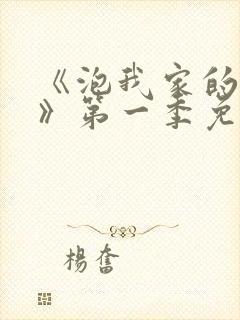 《泡我家的
》第一季免
楊奮